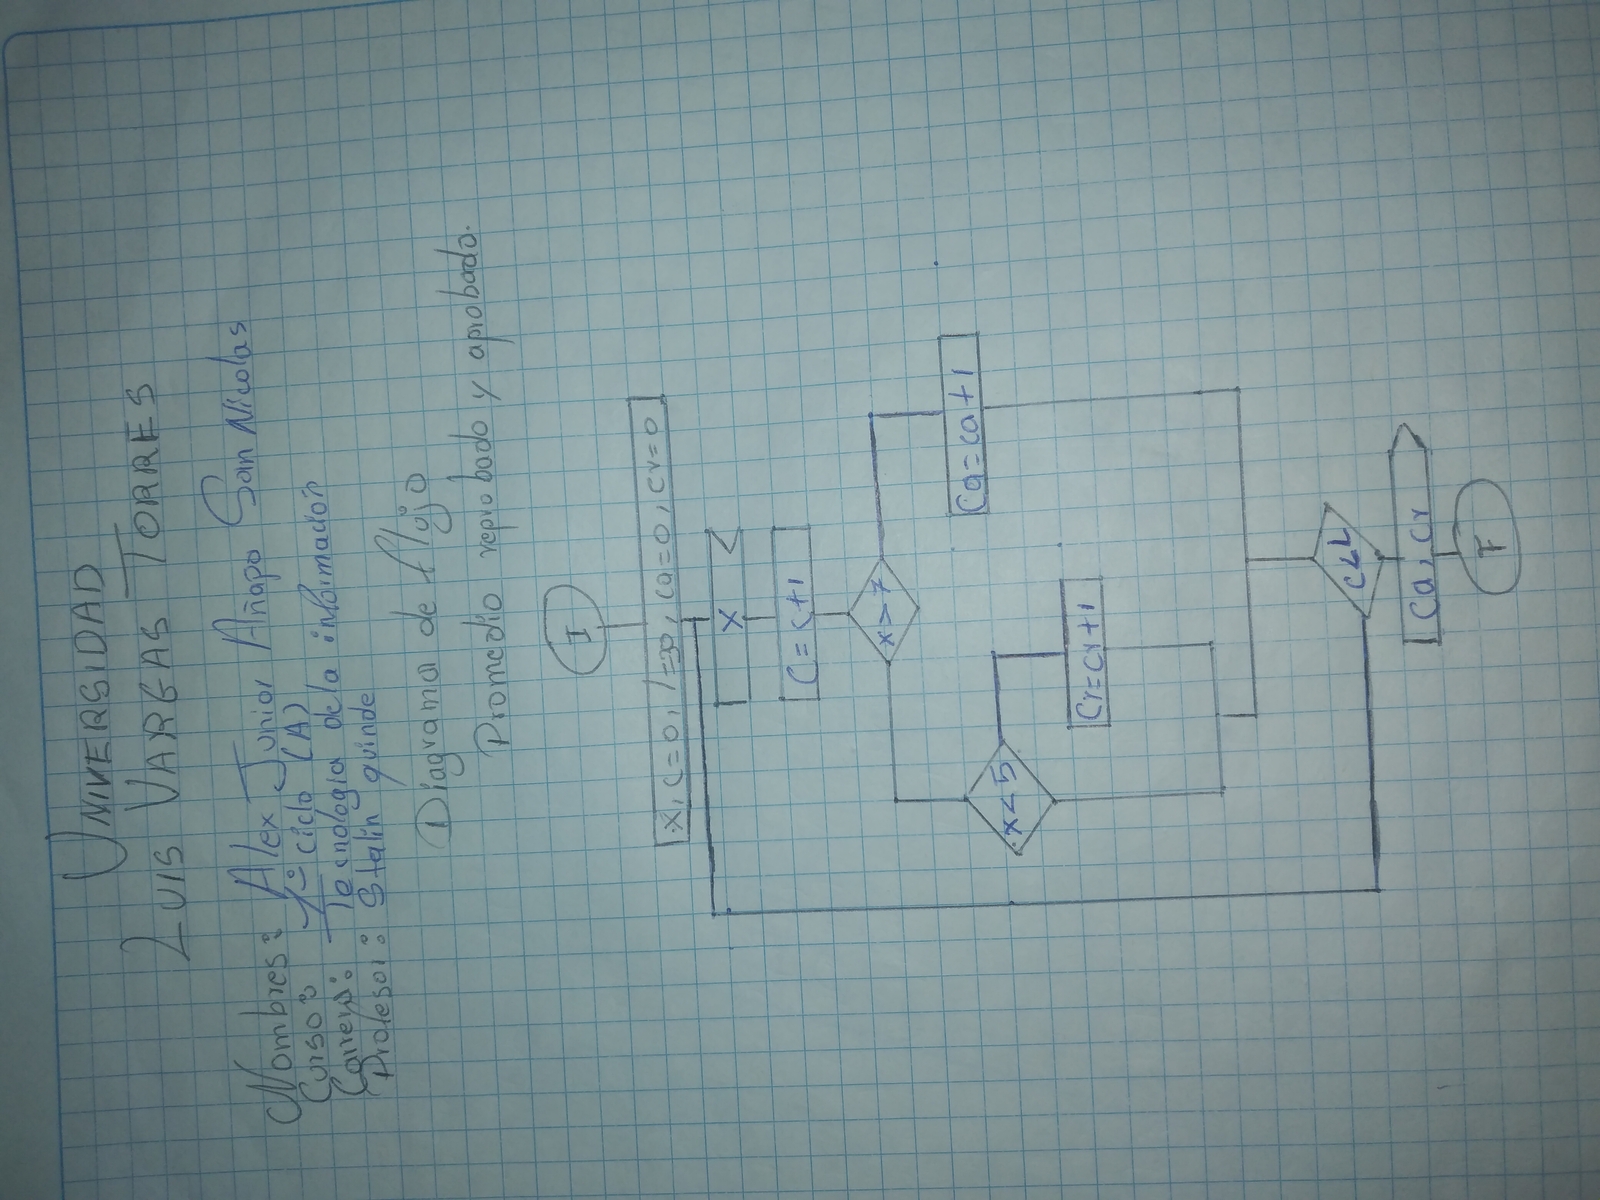 UNIVERSIDAD
LUIS VARGAS TORRES
Nombres: Alex Junior Añapo San Nicolas
Curso: 1º ciclo (A)
Carrera: Tecnologia de la informacion
Profesor: Stalin quinde
Diagrama de flujo
Promedio reprobado y aprobado.
I
x, c=0, l=30, ca=0, cr=0
x
C=c+1
x>7
Ca=ca+1
x<5
Cr=cr+1
C<L
Ca, Cr
F